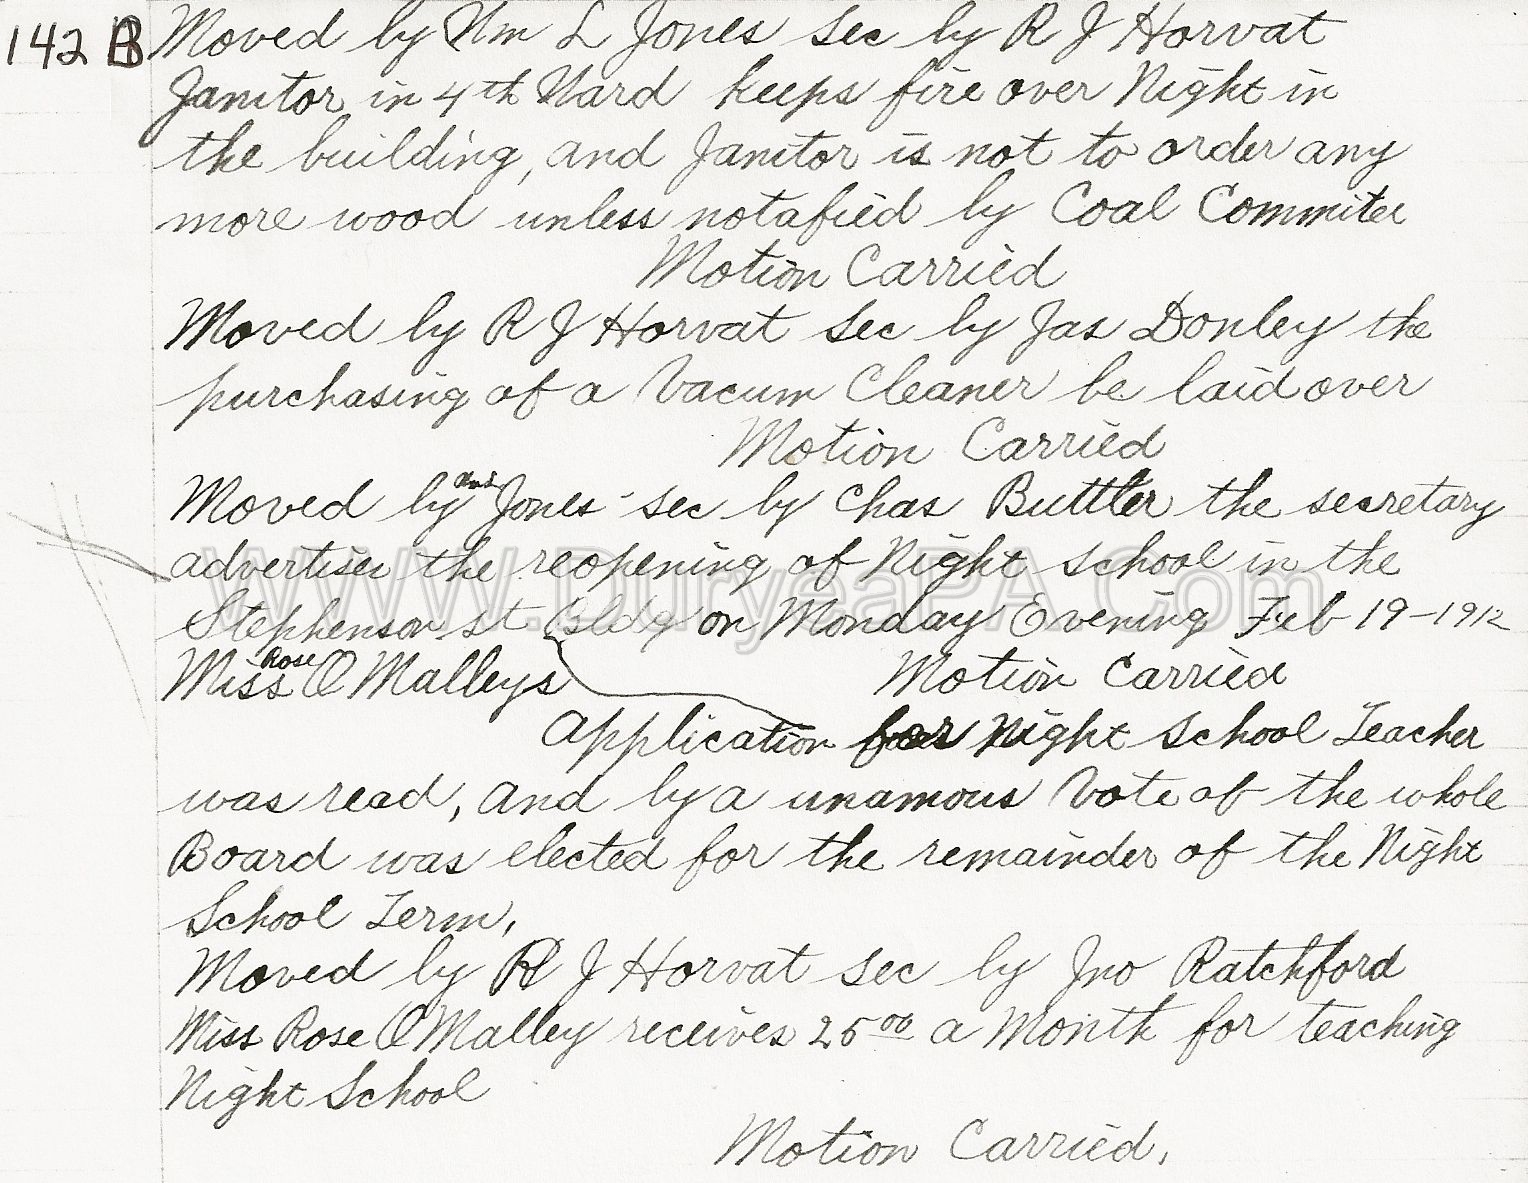 142 B
Moved by Wm L Jones Sec by R J Horvat
Janitor in 4th Ward keeps fire over Night in
the building, and Janitor is not to order any
more wood unless notafied by Coal Commitee
Motion Carried
Moved by R J Horvat Sec by Jas Donley the
purchasing of a Vacum Cleaner be laid over
Motion Carried
Moved by Jones Sec by Chas Buttler the secretary
advertises the reopening of Night School in the
Stephenson st Bldg on Monday Evening Feb 19-1912
Miss Rose O Malleys Motion Carried
Application for Night School Teacher
was read, and by a unamous Vote of the whole
Board was elected for the remainder of the Night
School Term,
Moved by R J Horvat Sec by Jno Ratchford
Miss Rose O Malley receives 25 00 a Month for teaching
Night School
Motion Carried,
www.DuryeaPA.Com